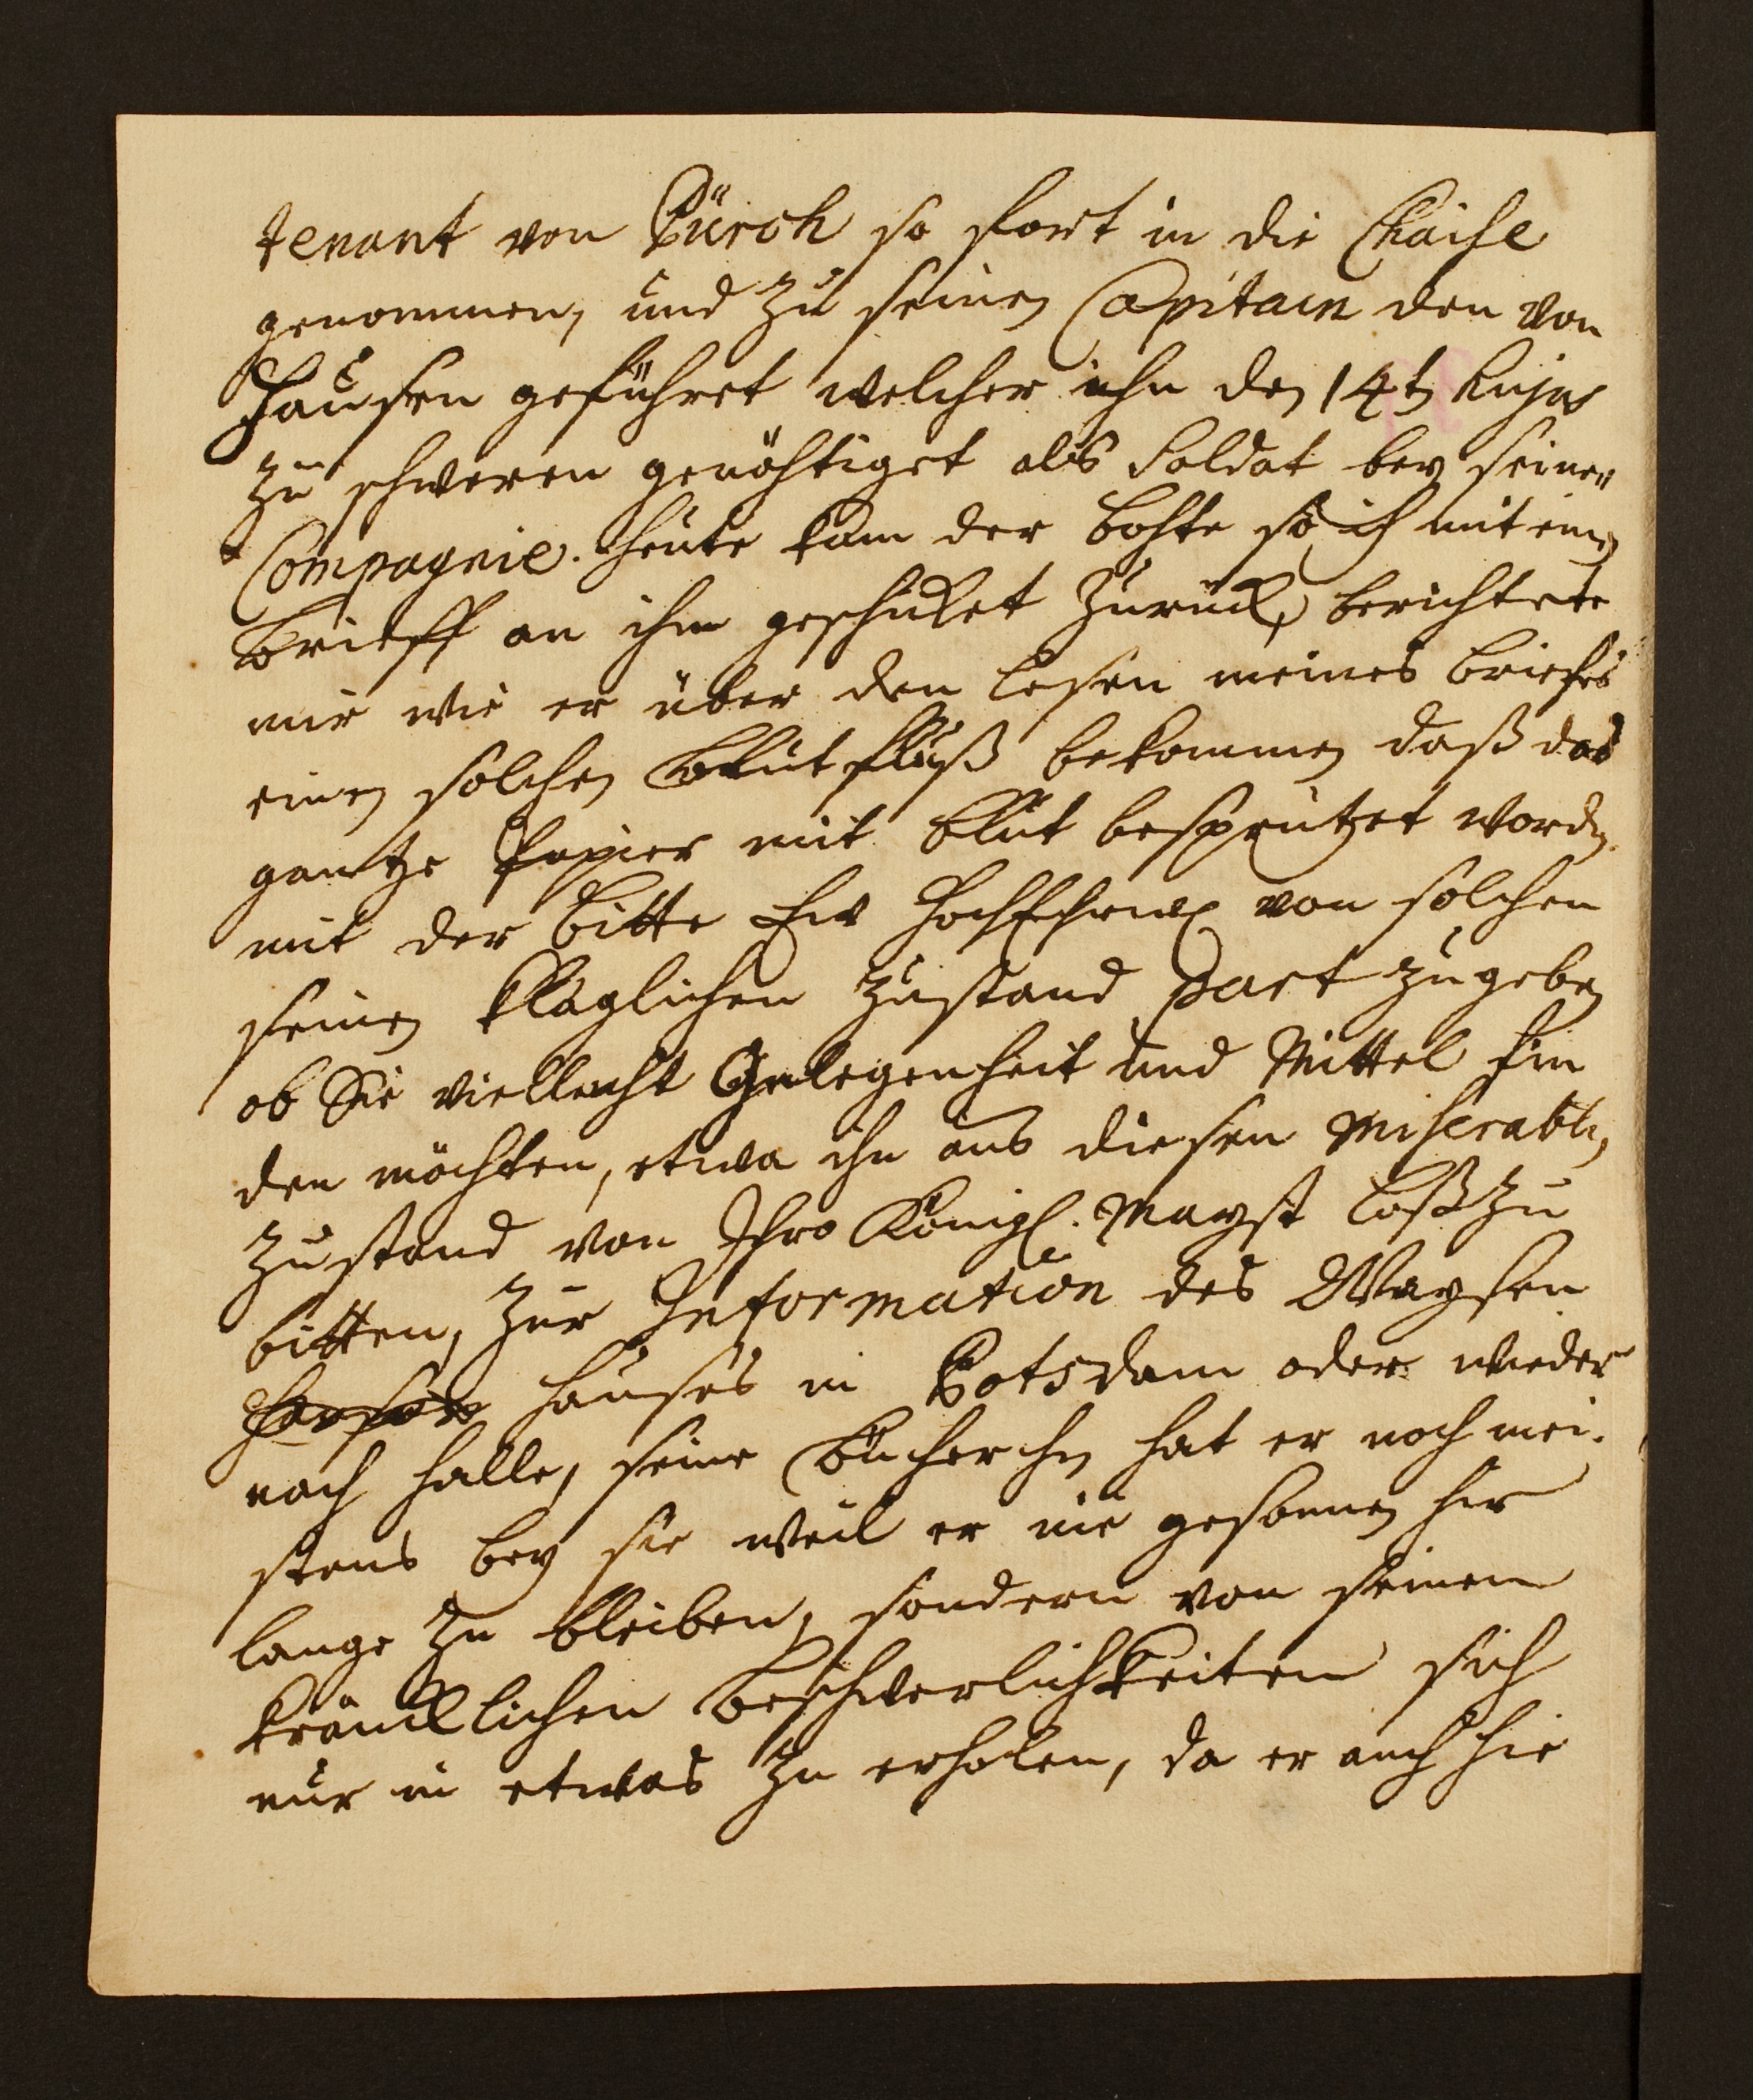 tenant von Pürch so fort in die Chaise
genommen, und zu seinen Capitain den von
Hausen geführet welcher ihn den 14t hujus
zu schweren genöhtiget als Soldat bey seiner
Compagnie. Heute kam der bohte so ich mit einen
Brieff an ihm geschicket zurück, berichtete
mir wie er über den lesen meines briefes
einen solchen blutfluß bekommen daß das
gantze Papier mit blut besprützet worden.
mit der bitte Ew HochEhrw von solchen
seinen kläglichen zustand part zu geben
ob Sie vielleicht Gelegenheit und Mittel fin
den möchten, etwa ihn aus diesen miserablen
zustand von Ihro Königl. Mayst loß zu
bitten, zur Information des Waysen
hauses in Potsdam oder wieder
nach Halle, seine Bücherchen hat er noch mei-
stens bey sie weil er nie gesonnen hir
lange zu bleiben, sondern von seinen
kräncklichen beschwerlichkeiten sich
nur in etwas zu erholen, da er auch hie